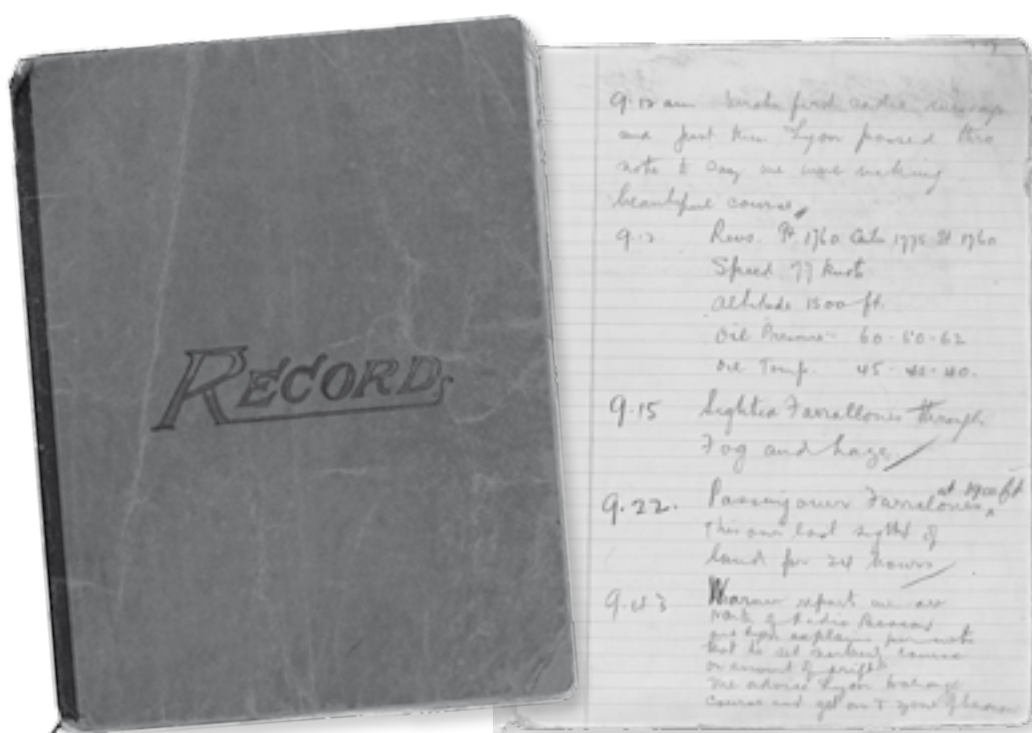 RECORD
9.12 am first radio message
and just then Lyon passed thro
note to say we were making
beautiful course
9.12 Revs. Pt 1760 Cent. 1775 St 1760
Speed 77 knots
Altitude 1500 ft.
Oil Pressure - 60-60-62
Oil Temp. 45-42-40.
9.15 Sighted Farrallones through
Fog and haze.
9.22. Passing over Farralones at 1900 ft
This our last sight of
land for 24 hours
9.43 Warner report we are
of Radio Beacon
and Lyon explains per note
that he set course
on account of drift
We advise Lyon to change
course and get on T zone of beacon